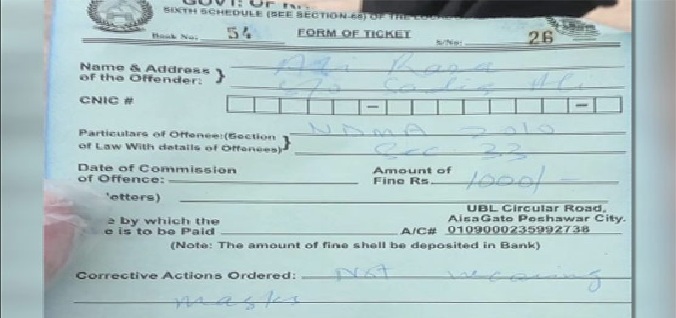 GOVT: OF
SIXTH SCHEDULE (SEE SECTION-66) OF THE
Book No: 54 FORM OF TICKET S/No: 26
Name & Address of the Offender: } Ali Raza
S/o Sadiq
CNIC #
Particulars of Offence:(Section NDMA 2010
of Law With details of Offences)} Sec 33
Date of Commission of Offence: Amount of Fine Rs. 1000/-
etters)
e by which the UBL Circular Road,
e is to be Paid AisaGate Peshawar City.
A/C# 0109000235992738
(Note: The amount of fine shell be deposited in Bank)
Corrective Actions Ordered: Not wearing
masks